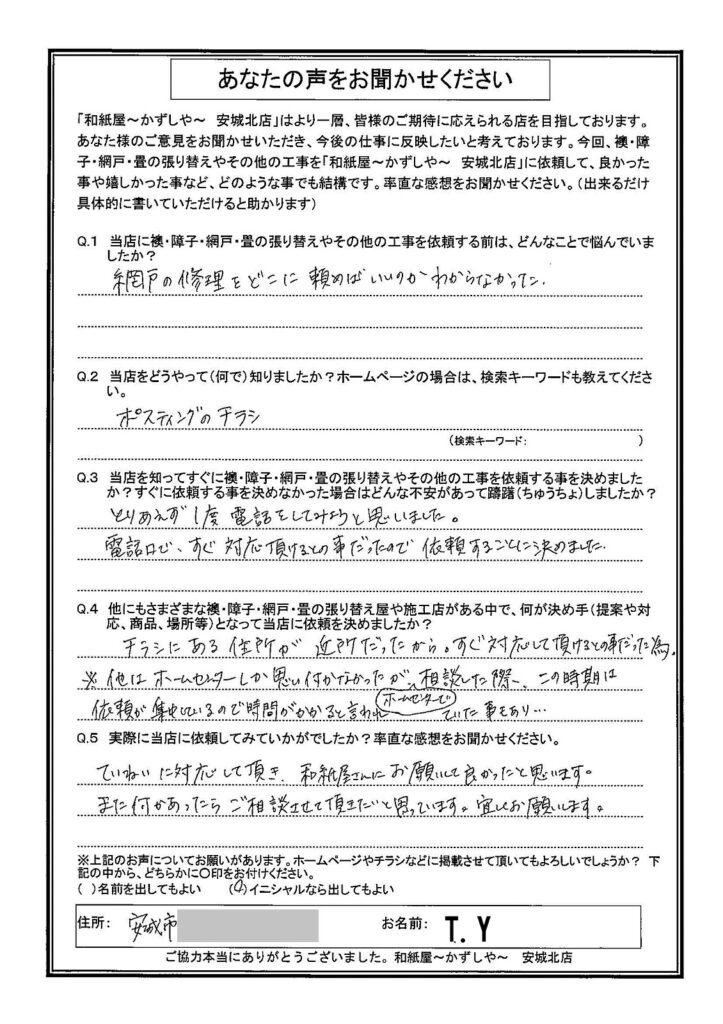 あなたの声をお聞かせください
「和紙屋～かずしや～　安城北店」はより一層、皆様のご期待に応えられる店を目指しております。
あなた様のご意見をお聞かせいただき、今後の仕事に反映したいと考えております。今回、襖・障
子・網戸・畳の張り替えやその他の工事を「和紙屋～かずしや～　安城北店」に依頼して、良かった
事や嬉しかった事など、どのような事でも結構です。率直な感想をお聞かせください。（出来るだけ
具体的に書いていただけると助かります）
Q.1　当店に襖・障子・網戸・畳の張り替えやその他の工事を依頼する前は、どんなことで悩んでいま
したか？
網戸の修理をどこに頼めばいいのかわからなかった.
Q.2　当店をどうやって（何で）知りましたか？ホームページの場合は、検索キーワードも教えてくださ
い。
ポスティングのチラシ
（検索キーワード：　　　　　　　　　）
Q.3　当店を知ってすぐに襖・障子・網戸・畳の張り替えやその他の工事を依頼する事を決めました
か？すぐに依頼する事を決めなかった場合はどんな不安があって躊躇（ちゅうちょ）しましたか？
とりあえず1度電話をしてみようと思いました。
電話口で、すぐ対応頂けるとの事だったので依頼することに決めました.
Q.4　他にもさまざまな襖・障子・網戸・畳の張り替え屋や施工店がある中で、何が決め手（提案や対
応、商品、場所等）となって当店に依頼を決めましたか？
チラシにある住所が近所だったから。すぐ対応して頂けるとの事だった為。
※他はホームセンターしか思い付かなかったが、相談した際、この時期は
ホームセンターで
依頼が集中しているので時間がかかると言われていた事もあり…
Q.5　実際に当店に依頼してみていかがでしたか？率直な感想をお聞かせください。
ていねいに対応して頂き、和紙屋さんにお願いして良かったと思います。
また何かあったらご相談させて頂きたいと思っています。宜しくお願いします。
※上記のお声についてお願いがあります。ホームページやチラシなどに掲載させて頂いてもよろしいでしょうか？　下
記の中から、どちらかに〇印をお付けください。
（　）名前を出してもよい　　（〇）イニシャルなら出してもよい
住所：　安城市　　お名前：　T.Y
ご協力本当にありがとうございました。和紙屋～かずしや～　安城北店